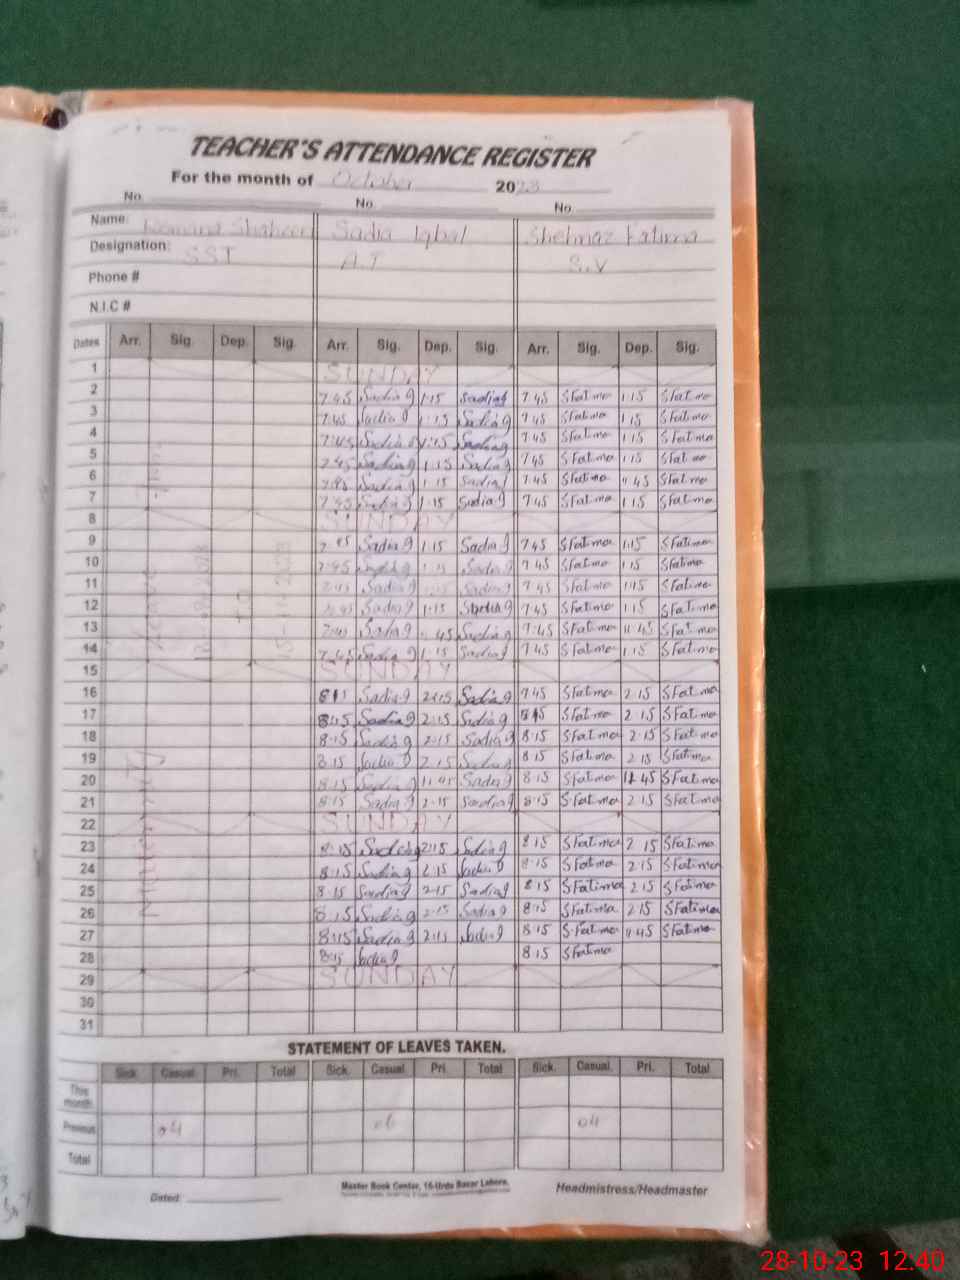 TEACHER'S ATTENDANCE REGISTER
For the month of October 2023
No. No. No.
Name: Shaheen Sadia Iqbal Shehnaz Fatima
Designation: SST A.T S.V
Phone #
N.I.C #
Dates Arr. Sig. Dep. Sig. Arr. Sig. Dep. Sig. Arr. Sig. Dep. Sig.
1 SUNDAY
2 7.45 Sadia g 1.15 Sadia g 7.45 SFatima 1.15 SFatima
3 7.45 Sadia g 1.15 Sadia g 7.45 SFatima 1.15 SFatima
4 7.45 Sadia g 1.15 Sadia g 7.45 SFatima 1.15 SFatima
5 7.45 Sadia g 1.15 Sadia g 7.45 SFatima 1.15 SFatima
6 7.45 Sadia g 1.15 Sadia g 7.45 SFatima 11.45 SFatima
7 7.45 Sadia g 1.15 Sadia g 7.45 SFatima 1.15 SFatima
8 SUNDAY
9 7.45 Sadia g 1.15 Sadia g 7.45 SFatima 1.15 SFatima
10 7.45 Sadia g 1.15 Sadia g 7.45 SFatima 1.15 SFatima
11 7.45 Sadia g 1.15 Sadia g 7.45 SFatima 1.15 SFatima
12 7.45 Sadia g 1.15 Sadia g 7.45 SFatima 1.15 SFatima
13 7.45 Sadia g 11.45 Sadia g 7.45 SFatima 11.45 SFatima
14 7.45 Sadia g 1.15 Sadia g 7.45 SFatima 1.15 SFatima
15 SUNDAY
16 Sadia g 2.15 Sadia g 7.45 SFatima 2.15 SFatima
17 8.15 Sadia g 2.15 Sadia g SFatima 2.15 SFatima
18 8.15 Sadia g 2.15 Sadia g 8.15 SFatima 2.15 SFatima
19 8.15 Sadia g 2.15 Sadia g 8.15 SFatima 2.15 SFatima
20 8.15 Sadia g 11.45 Sadia g 8.15 SFatima 11.45 SFatima
21 8.15 Sadia g 2.15 Sadia g 8.15 SFatima 2.15 SFatima
22 SUNDAY
23 8.15 Sadia g 2.15 Sadia g 8.15 SFatima 2.15 SFatima
24 8.15 Sadia g 2.15 Sadia g 8.15 SFatima 2.15 SFatima
25 8.15 Sadia g 2.15 Sadia g 8.15 SFatima 2.15 SFatima
26 8.15 Sadia g 2.15 Sadia g 8.15 SFatima 2.15 SFatima
27 8.15 Sadia g 2.15 Sadia g 8.15 SFatima 11.45 SFatima
28 8.15 Sadia g 8.15 SFatima
29 SUNDAY
30
31
STATEMENT OF LEAVES TAKEN.
Sick. Casual. Pri. Total Sick. Casual. Pri. Total Sick. Casual. Pri. Total
This month
Previous 04 06 04
Total
Dated: Master Book Center, 16-Urdu Bazar Lahore. Headmistress/Headmaster
28-10-23 12:40